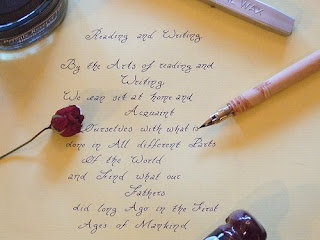 WAX
Reading and Writing
By the Arts of reading and
Writing,
We can sit at home and
Acquaint
Ourselves with what is
done in All different Parts
Of the World
and Find what our
Fathers
did long Ago in the First
Ages of Mankind